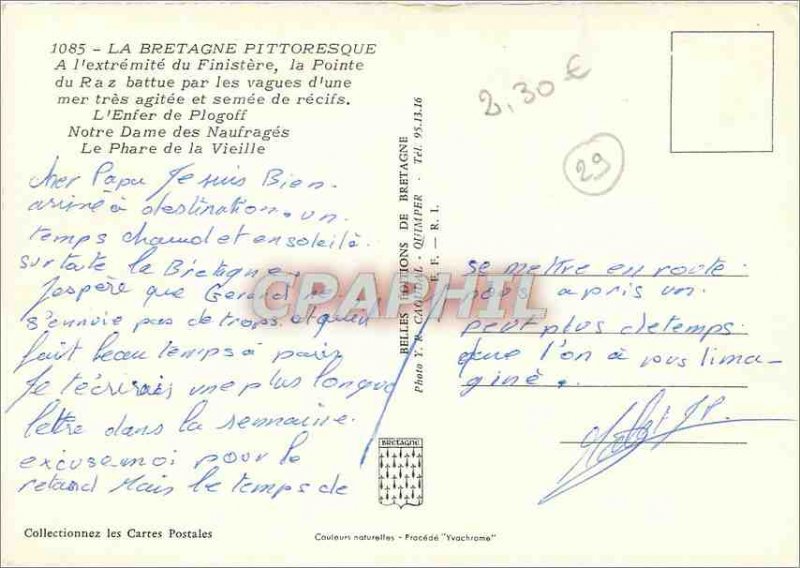 1085 - LA BRETAGNE PITTORESQUE
A l'extrémité du Finistère, la Pointe
du Raz battue par les vagues d'une
mer très agitée et semée de récifs.
L'Enfer de Plogoff
Notre Dame des Naufragés
Le Phare de la Vieille
cher Papa Je suis Bien.
arrivé à destination. un
temps chaud et ensoleilé.
sur toute la Bretagne.
J'espère que Gerard ne
s'ennuie pas de trops. et qu'en
fait beau temps à paris
Je t'écrirais une plus longue
lettre dans la semmaine.
excuse moi pour le
retard Mais le temps de
2,30 €
29
se mettre en route.
nous a pris un.
peut plus de temps.
que l'on à vous l'ima-
giné.
J.P.
BELLES ÉDITIONS DE BRETAGNE
Photo Y. R. CAOUDAL - QUIMPER - Tél. 95.13.16
E. F. — R. I.
CPAPHIL
BRETAGNE
Collectionnez les Cartes Postales
Couleurs naturelles - Procédé "Yvachrome"